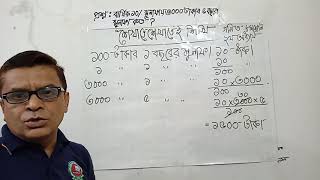 প্রশ্ন : বার্ষিক ১০% মুনাফায় ৩০০০ টাকার ৫ বছরের
মুনাফা কত ?
১০০ টাকার ১ বছরের মুনাফা ১০ টাকা
১ " ১ " " ১০
১০০
৩০০০ " ১ " " ১০×৩০০০
১০০
৩০০০ " ৫ " " ১০×৩০০০×৫
১০০
= ১৫০০ টাকা